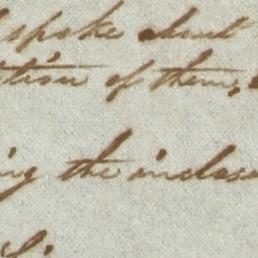 spoke about
ition of them,
ing the inclose